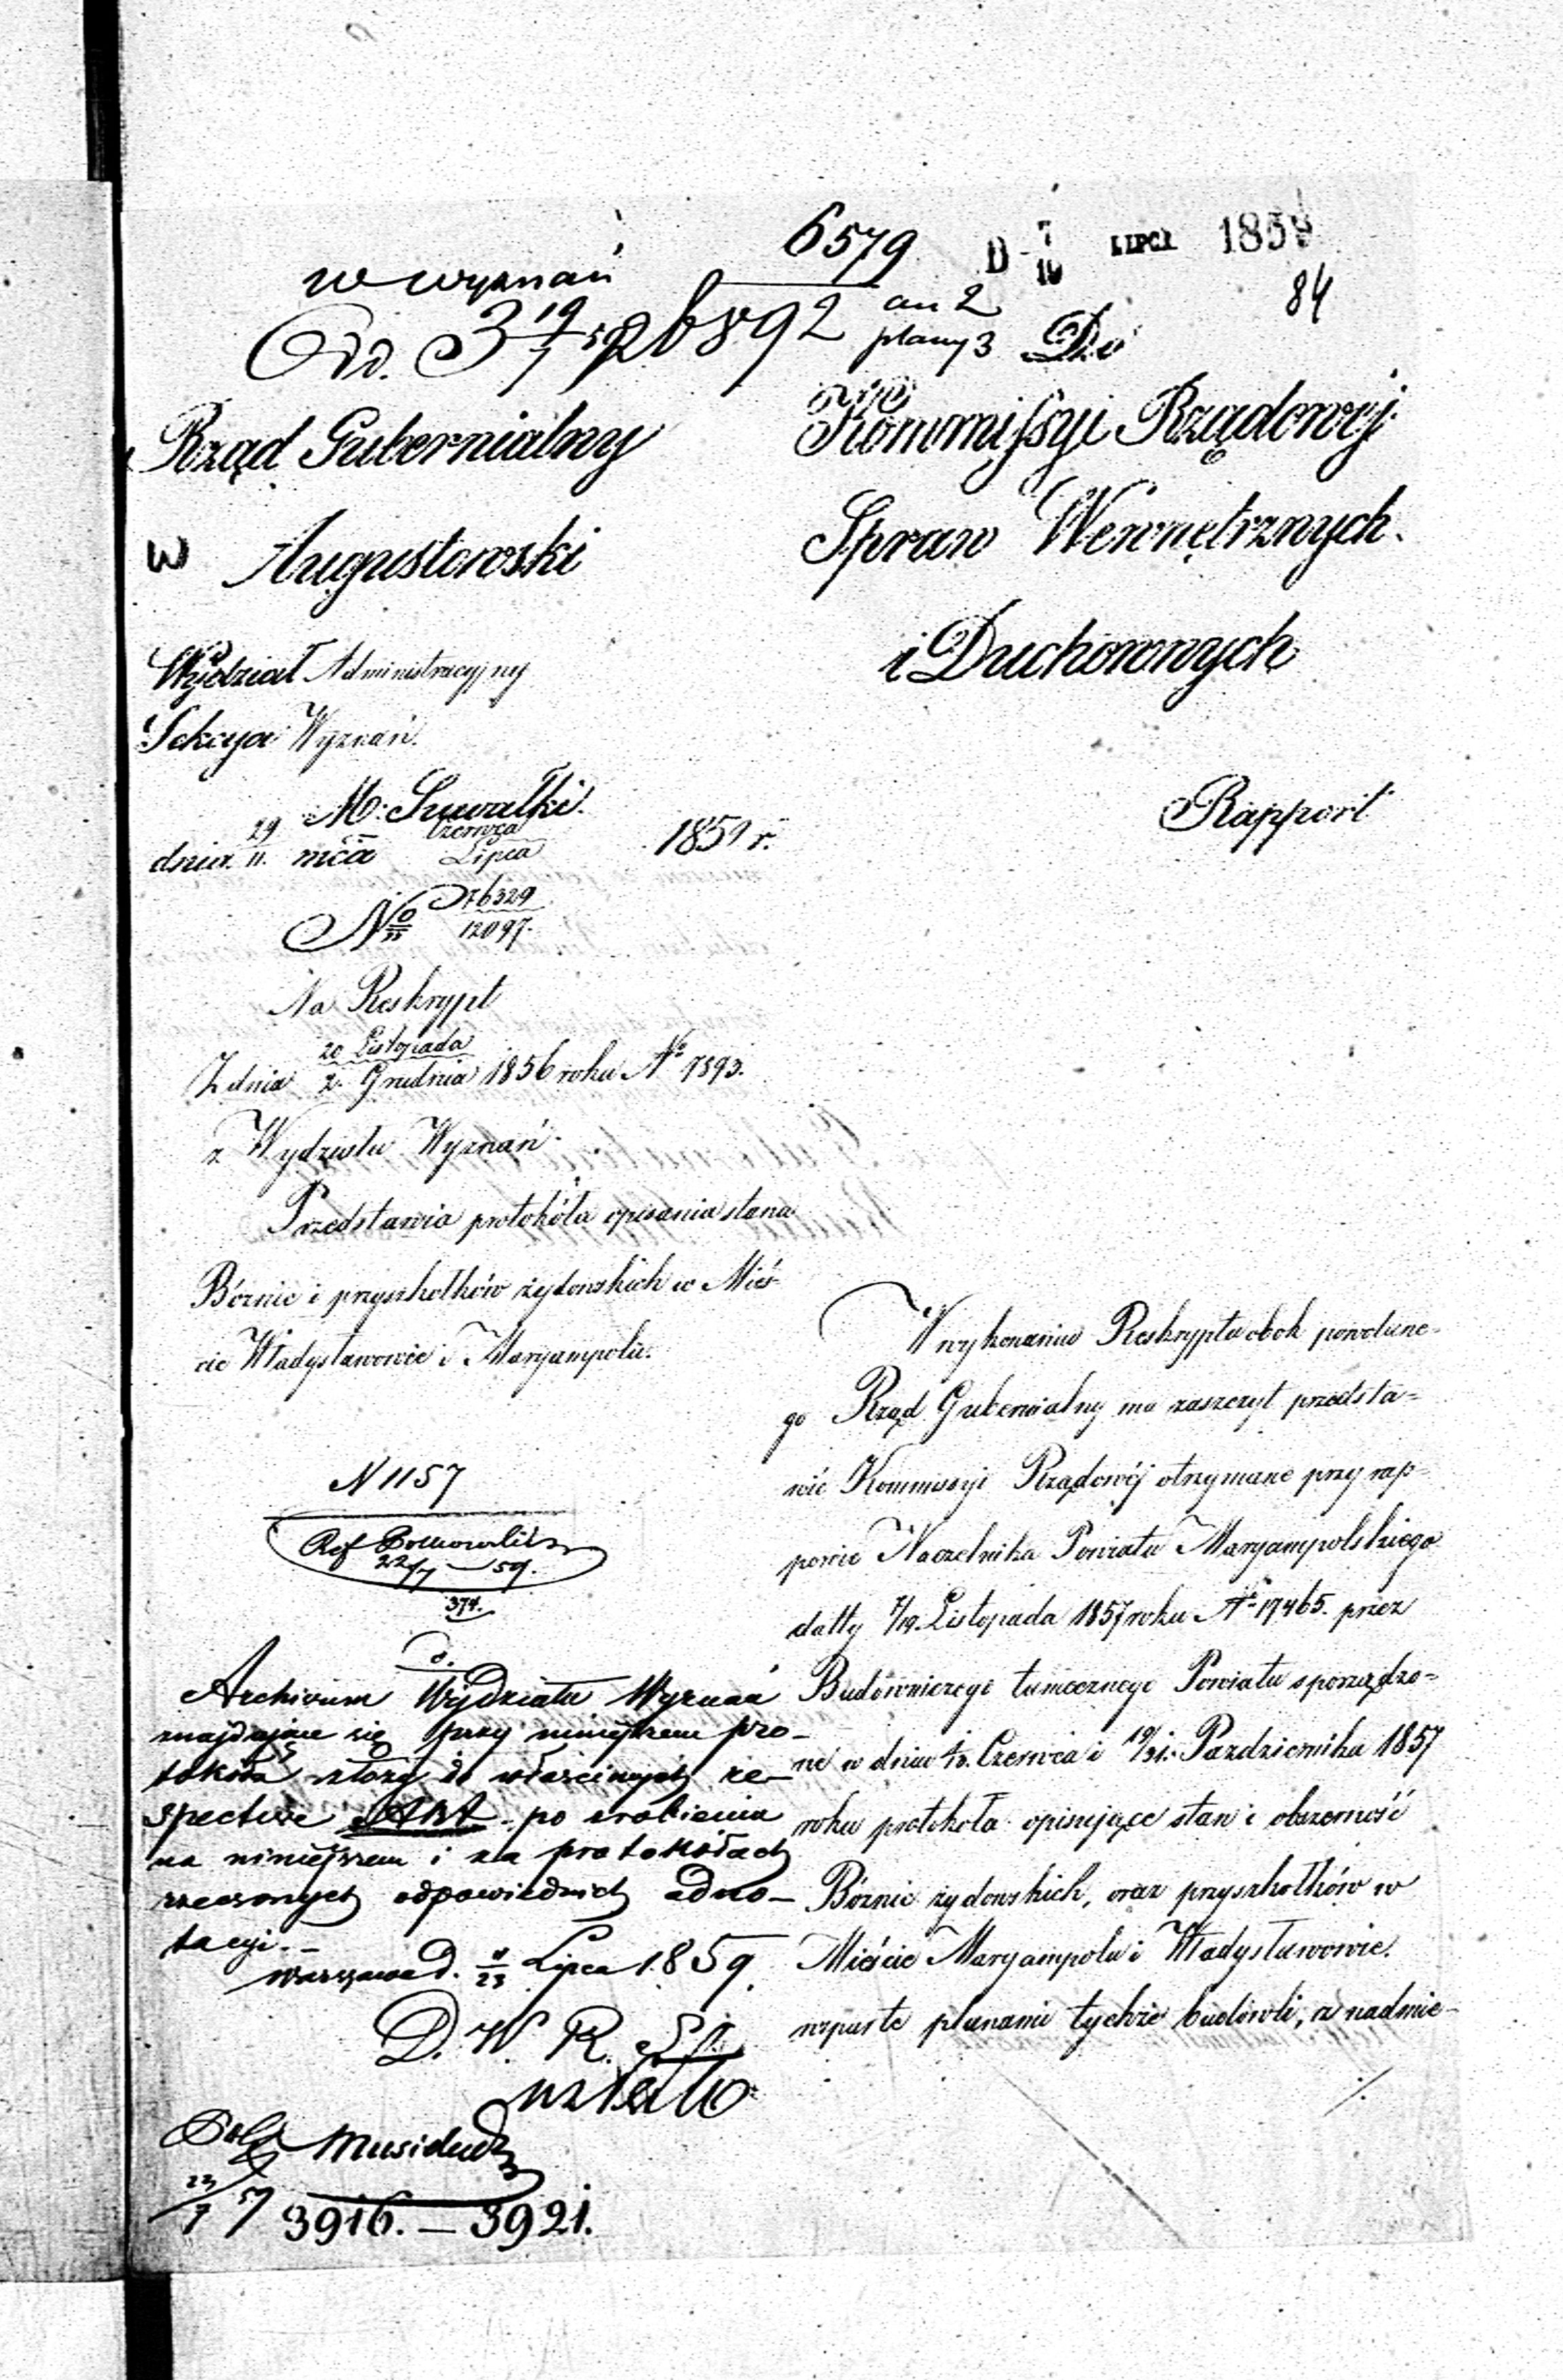 6579
D 7/19 LIPCA 1859
84
w wyznań
Od. 19/7 59 6892
an 2
plany 3
Do
Rząd Gubernialny
Augustowski
Wydział Administracyjny
Sekcya Wyznań.
M: Suwałki.
dnia 29/11. mca Czerwca/Lipca 1859 r.
No 76329/12097.
Na Reskrypt
Z dnia 20 Listopada/2. Grudnia 1856 roku No 7893.
z Wydziału Wyznań
Przedstawia protokóła opisania stanu
Bóżnic i przyszkołków żydowskich w Mieś-
cie Władysławowie i Maryampolu.
N 1157
Ref
22/7 – 59.
374.
Archiwum Wydziału Wyznań
znajdujące się przy niniejszem pro-
tokóła złoży do właściwych re-
spective Akt po zrobieniu
na niniejszem i na protokółach
rzeczonych odpowiednich adno-
tacyi. –
Warszawa d. 11/23 Lipca 1859.
D. W. R. St.
23/7 59
3916. – 3921.
Kommissyi Rządowéj
Spraw Wewnętrznych
i Duchownych
Rapport
W wykonaniu Reskryptu obok powołane-
go Rząd Gubernialny ma zaszczyt przedsta-
wić Kommissyi Rządowéj otrzymane przy rap-
porcie Naczelnika Powiatu Maryampolskiego
datty 7/19. Listopada 1857 roku No 17465. przez
Budowniczego tamecznego Powiatu sporządzo-
ne w dniu Czerwca i 19/31. Pazdziernika 1857
roku protokóła opisujące stan i obszerność
Bóżnic żydowskich, oraz przyszkołków w
Mieście Maryampolu i Władysławowie.
wsparte planami tychże budowli, z nadmie-